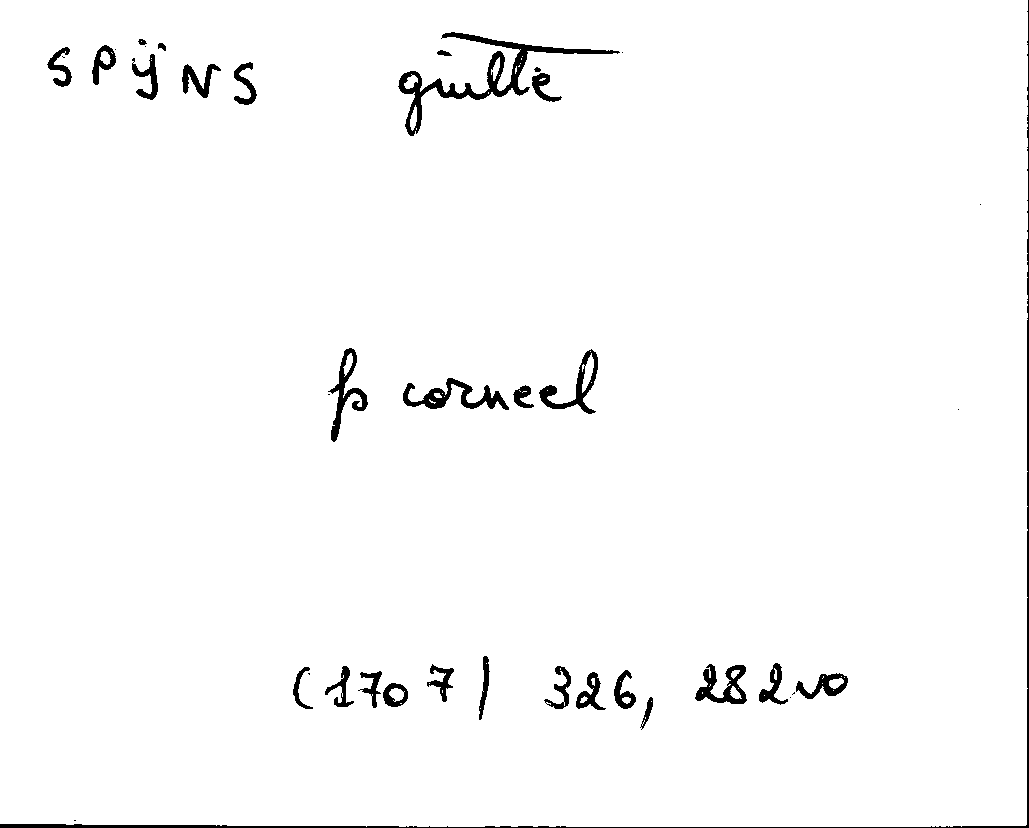 SPIJNS guillē
p corneel
(1707) 326, 282vo